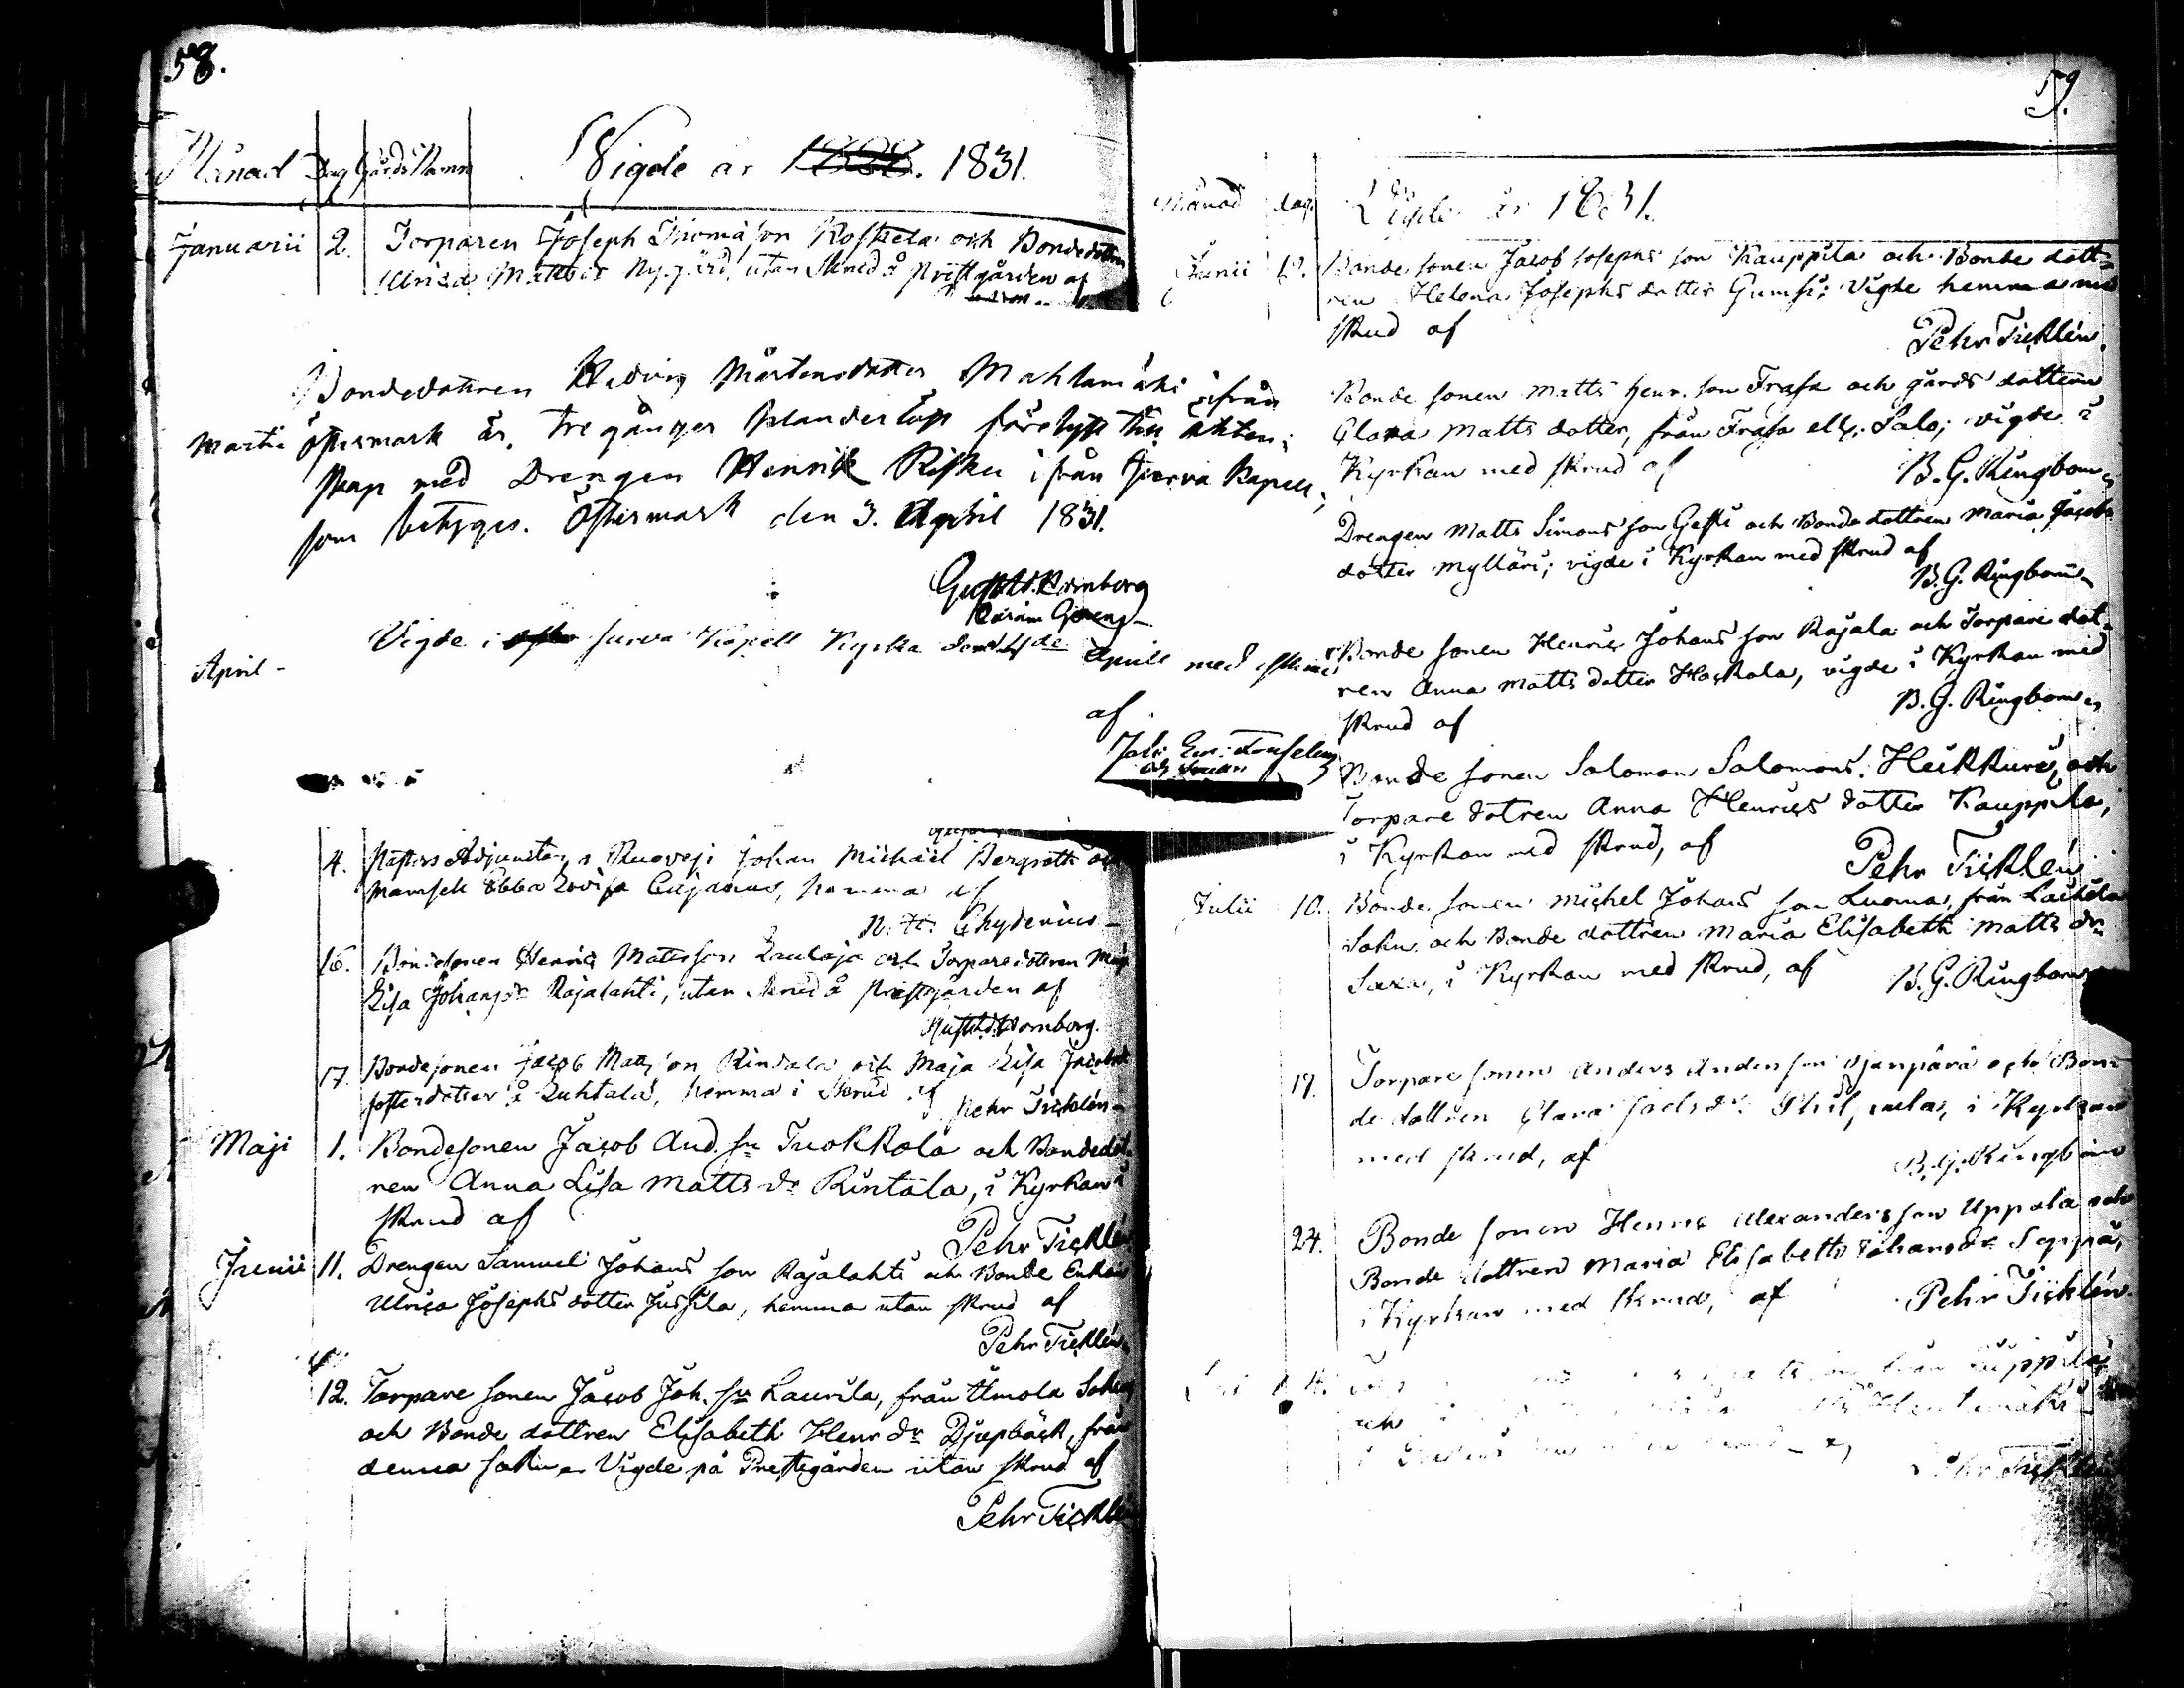 58.
Månad Dag Gårds Namn Vigde år 1828. 1831.
Januarii 2. Torparen Joseph Thomasson Koskela och Bondedottren
Ulrica Mattsdr Nygård, utan skrud å Prestgården af
Bondedottren Hedvig Mårtensdotter Mahlamäki ifrån
Martii Östermark är tre gånger Blanderlöst förelyst till äkten-
skap med Drengen Henrik Risku ifrån Jurva Kapell,
som betygas. Östermark den 3. April 1831.
Gust. Ad. Bomborg
April - Vigde i Jurva Kapell Kyrka den 4de April med
af
4. Pastors Adjuncten i Ruovesi Johan Michael Bergroth och
Mamsell Ebba Lovisa Cajanus, hemma af
N. H. Chydenius
16. Bondesonen Henric Mattsson Laulaja och Torparedottren Maja
Lisa Johansdr Rajalahti, utan skrud å Prestgården af
17. Bondesonen Jacob Mattsson Rindala och Maja Lisa Jacobsdr
fosterdotter å Luhtala, hemma i skrud af Pehr Ticklén
Maji 1. Bondesonen Jacob And. sn Tuokkola och Bondedot-
ren Anna Lisa Matts dr Rintala, i Kyrkan i
skrud af
Pehr Ticklén
Junii 11. Drengen Samuel Johans son Rajalahti och Bonde Enkan
Ulrica Josephs dotter Jussila, hemma utan skrud af
Pehr Ticklén
12. Torpare sonen Jacob Joh. sn Laurila, från Ilmola Sokn
och Bonde dottren Elisabeth Henr dr Djupbäck, från
denna sokn, Vigde på Prestegården utan skrud af
Pehr Ticklén
59.
Månad dag. Vigde år 1831.
Junii 12. Bonde sonen Jacob Josephs son Kauppila och Bonde dott-
ren Helena Josephs dotter Gumsi; Vigde hemma med
skrud af
Pehr Ticklén
Bonde sonen Matts Henr. son Frasa och gårds dottren
Clara Matts dotter, från Frasa ell. Salo; vigde i
Kyrkan med skrud af B. G. Ringbom
Drengen Matts Simons son Gessi och Bonde dottren Maria Jacobs
dotter Mylläri; vigde i Kyrkan med skrud af
B. G. Ringbom
Bonde sonen Henric Johans son Rajala och Torpare dot-
ren Anna Matts dotter Koskala, vigde i Kyrkan med
skrud af B. G. Ringbom
Bonde sonen Salomon Salomons. Heikkuri, och
Torpare dotren Anna Henrics dotter Kauppila,
i Kyrkan med skrud, af
Pehr Ticklén
Julii 10. Bonde sonen Michel Johans son Luoma, från Laihela
Sokn och Bonde dottren Maria Elisabeth Matts dr
Saxa, i Kyrkan med skrud, af B. G. Ringbom
17. Torpare sonen Anders Anderson och Bon-
de dottren Clara i Kyrkan
med skrud, af B. G. Ringbom
24. Bonde sonen Henric Alexanders son Uppala och
Bonde dottren Maria Elisabeth Johans dr Seppä,
i Kyrkan med skrud, af Pehr Ticklén
och
Pehr Ticklén